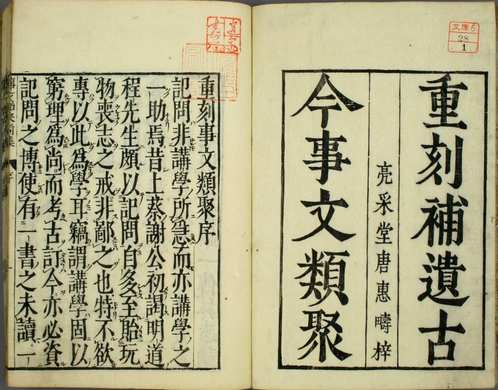 28
1
重刻補遺古
亮采堂唐惠疇梓
今事文類聚
重刻事文類聚序
記問非講學所急而亦講學之
一助焉昔上蔡謝公初謁明道
程先生頗以記問自多至貽玩
物喪志之戒非鄙之也特不欲
專以此為學耳竊謂講學固以
窮理為尚而考古訂今亦必資
記問之博使有一書之未讀一